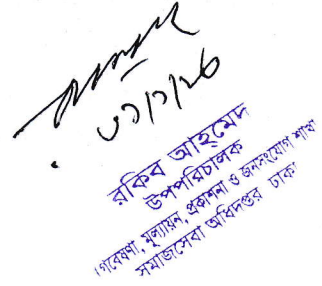 ৩১/১/২৬
রকিব আহমেদ
উপপরিচালক
গবেষণা, মূল্যায়ন, প্রকাশনা ও জনসংযোগ শাখা
সমাজসেবা অধিদপ্তর ঢাকা